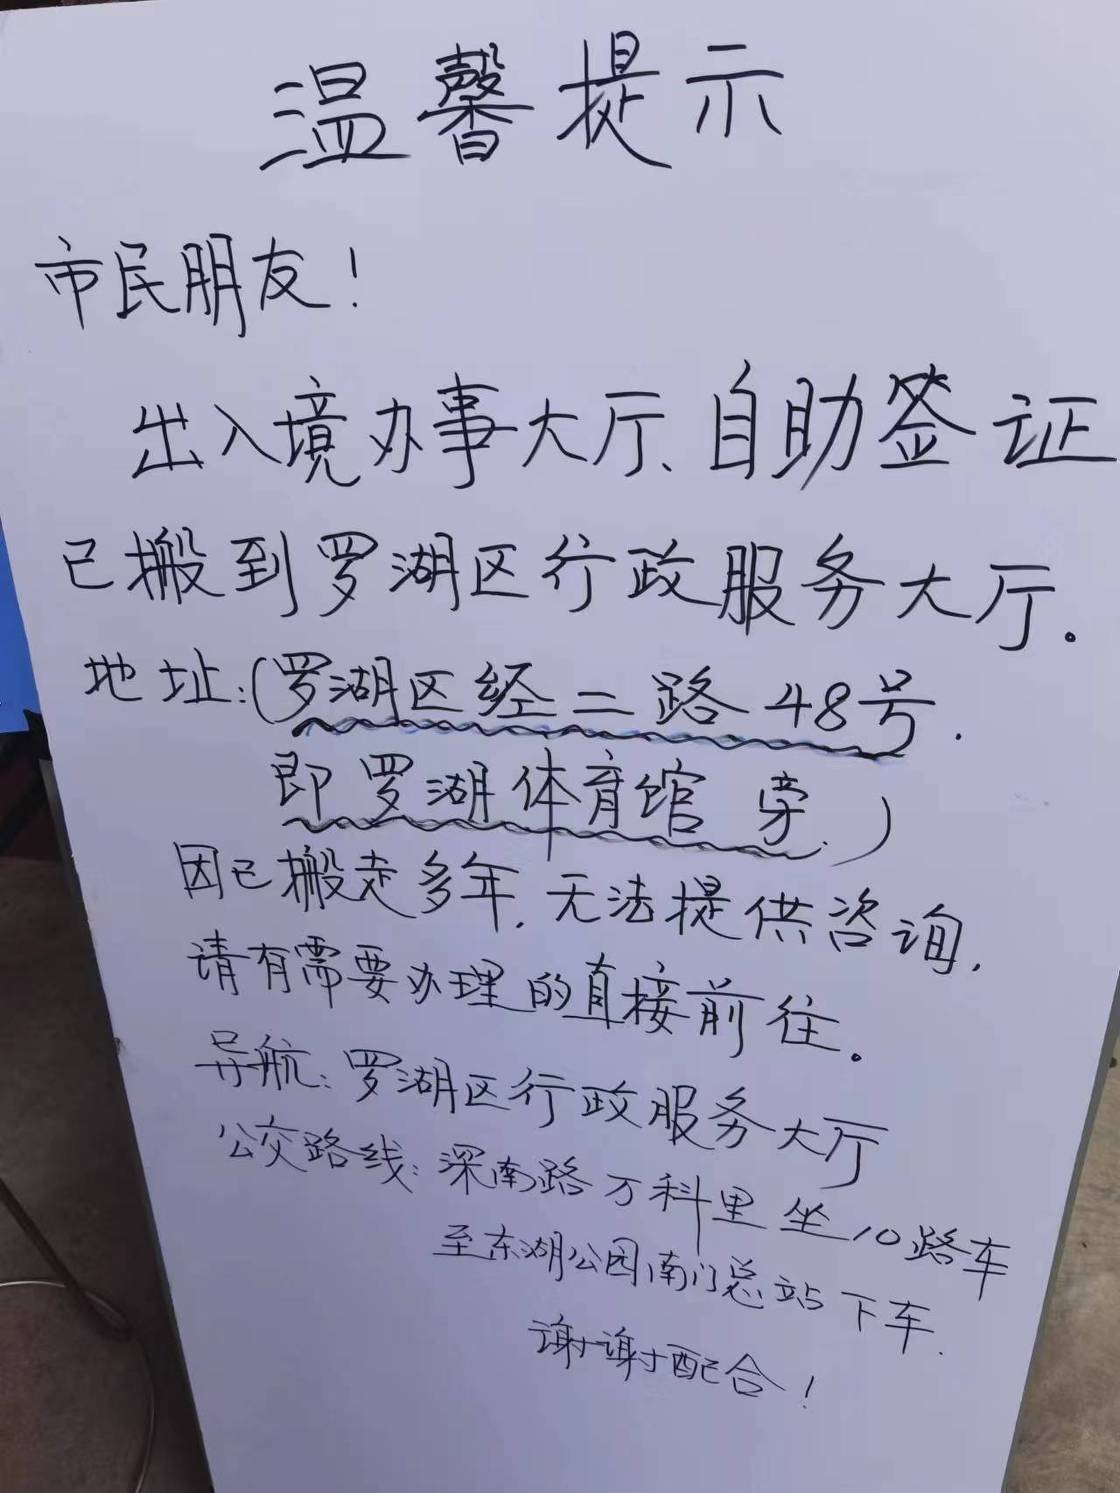 温馨提示
市民朋友!
出入境办事大厅、自助签证
已搬到罗湖区行政服务大厅.
地址:(罗湖区经二路48号.
即罗湖体育馆 旁.)
因已搬走多年,无法提供咨询,
请有需要办理的直接前往。
导航:罗湖区行政服务大厅
公交路线:深南路万科里坐10路车
至东湖公园南门总站下车.
谢谢配合!